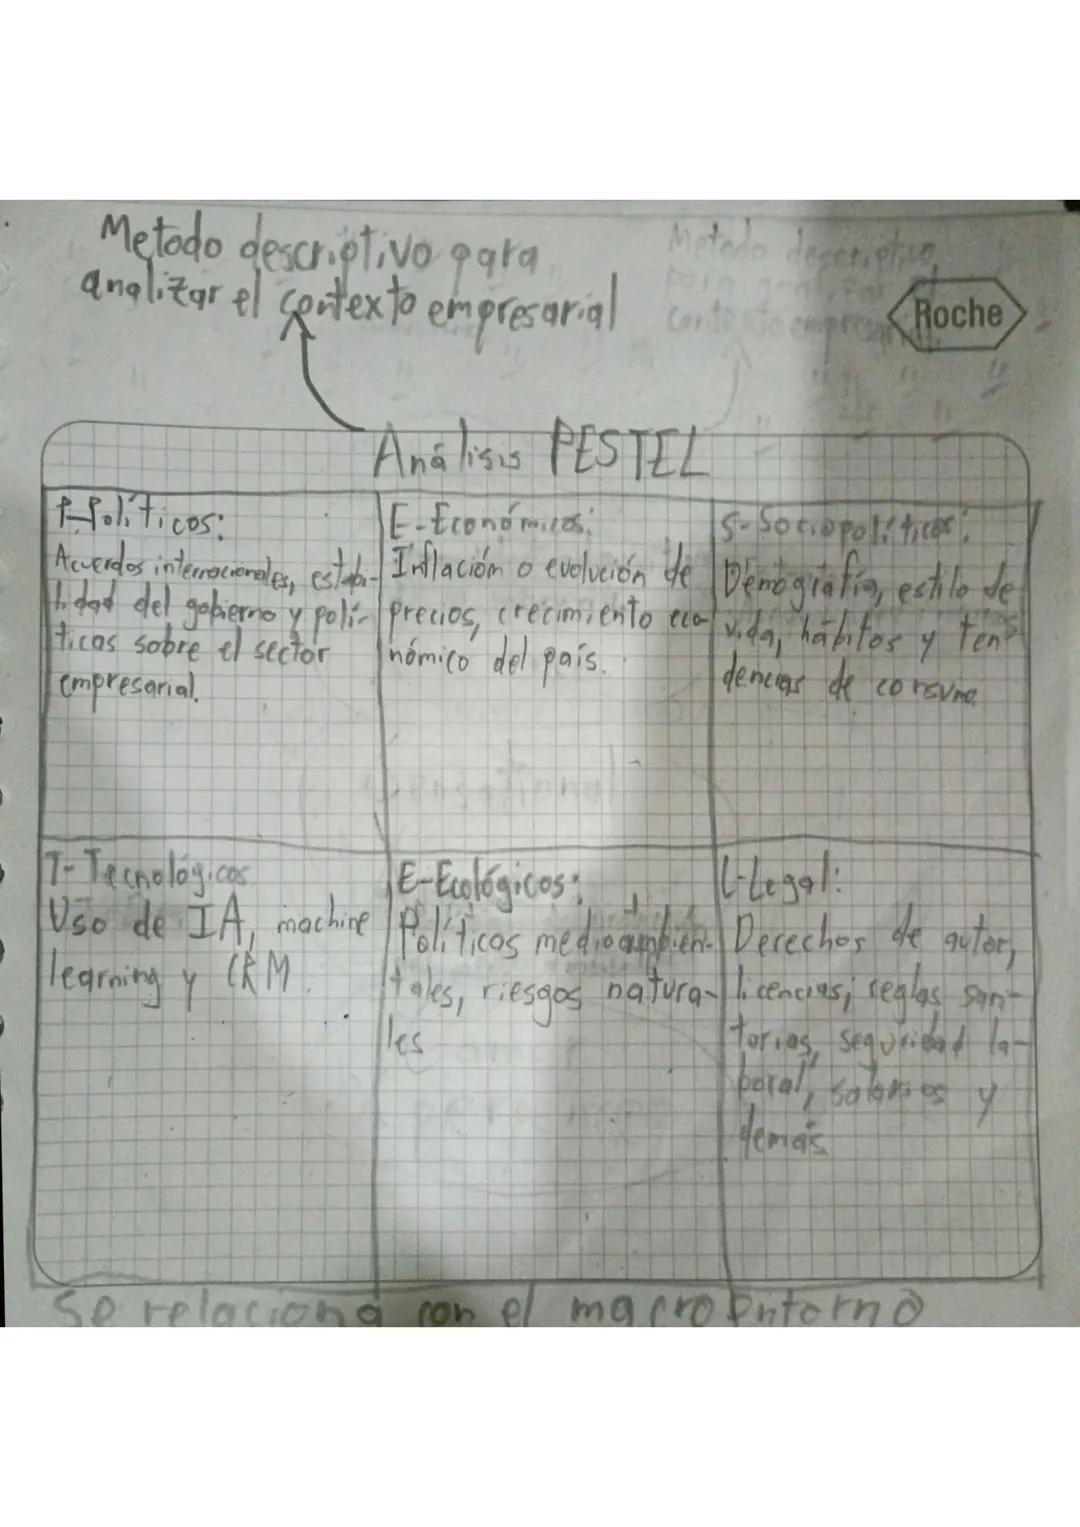 Metodo descriptivo para
analizar el contexto empresarial
Metodo descriptivo
Roche
Análisis PESTEL
P-Políticos:
Acuerdos internacionales, estabi-
lidad del gobierno y polí-
ticas sobre el sector
empresarial.
E-Económicos:
Inflación o evolución de
precios, crecimiento eco-
nómico del país.
S-Sociopolíticos:
Demografía, estilo de
vida, hábitos y ten
dencias de consumo
T-Tecnológicos
Uso de IA, machine
learning y CRM.
E-Ecológicos:
Políticas medioambien-
tales, riesgos natura-
les
L-Legal:
Derechos de autor,
licencias, reglas sani-
torias, seguridad la-
boral, salarios y
demás
Se relaciona con el macroentorno